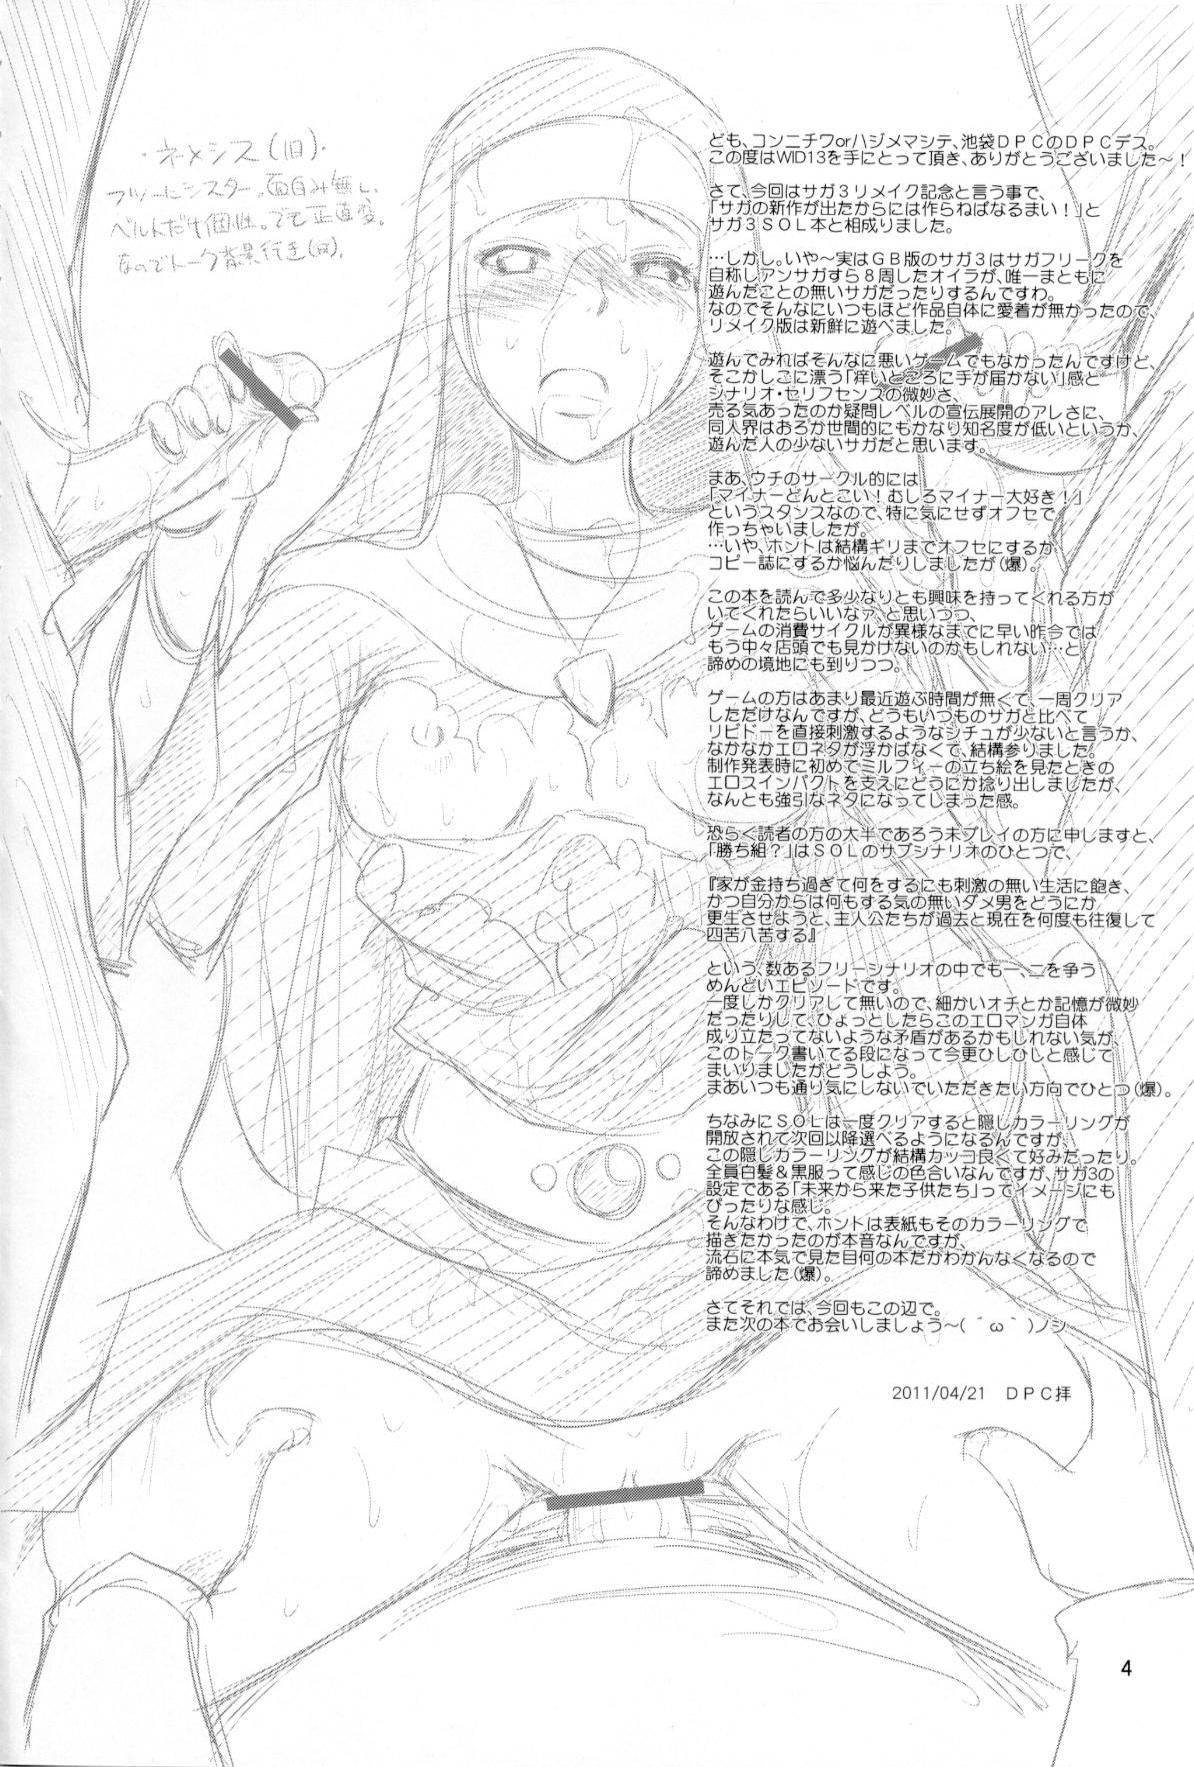 ・ネメシス(旧)・
フツーにシスター。面白み無し。
ベルトだけ個性。でも正直変。
なのでトーク背景行き(旧)。
ども、コンニチワorハジメマシテ、池袋ＤＰＣのＤＰＣデス。
この度はWID13を手にとって頂き、ありがとうございました～！
さて、今回はサガ３リメイク記念と言う事で、
「サガの新作が出たからには作らねばなるまい！」と
サガ３ＳＯＬ本と相成りました。
…しかし。いや～実はＧＢ版のサガ３はサガフリークを
自称しアンサガすら８周したオイラが、唯一まともに
遊んだことの無いサガだったりするんですわ。
なのでそんなにいつもほど作品自体に愛着が無かったので、
リメイク版は新鮮に遊べました。
遊んでみればそんなに悪いゲームでもなかったんですけど、
そこかしこに漂う「痒いところに手が届かない」感と
シナリオ・セリフセンスの微妙さ、
売る気あったのか疑問レベルの宣伝展開のアレさに、
同人界はおろか世間的にもかなり知名度が低いというか、
遊んだ人の少ないサガだと思います。
まあ、ウチのサークル的には
「マイナーどんとこい！むしろマイナー大好き！」
というスタンスなので、特に気にせずオフセで
作っちゃいましたが。
…いや、ホントは結構ギリまでオフセにするか
コピー誌にするか悩んだりしましたが(爆)。
この本を読んで多少なりとも興味を持ってくれる方が
いてくれたらいいなァ、と思いつつ、
ゲームの消費サイクルが異様なまでに早い昨今では
もう中々店頭でも見かけないのかもしれない…と
諦めの境地にも到りつつ。
ゲームの方はあまり最近遊ぶ時間が無くて、一周クリア
しただけなんですが、どうもいつものサガと比べて
リビドーを直接刺激するようなシチュが少ないと言うか、
なかなかエロネタが浮かばなくて、結構参りました。
制作発表時に初めてミルフィーの立ち絵を見たときの
エロスインパクトを支えにどうにか捻り出しましたが、
なんとも強引なネタになってしまった感。
恐らく読者の方の大半であろう未プレイの方に申しますと、
「勝ち組？」はＳＯＬのサブシナリオのひとつで、
『家が金持ち過ぎて何をするにも刺激の無い生活に飽き、
かつ自分からは何もする気の無いダメ男をどうにか
更生させようと、主人公たちが過去と現在を何度も往復して
四苦八苦する』
という、数あるフリーシナリオの中でも一、二を争う
めんどいエピソードです。
一度しかクリアして無いので、細かいオチとか記憶が微妙
だったりして、ひょっとしたらこのエロマンガ自体
成り立たってないような矛盾があるかもしれない気が、
このトーク書いてる段になって今更ひしひしと感じて
まいりましたがどうしよう。
まあいつも通り気にしないでいただきたい方向でひとつ(爆)。
ちなみにＳＯＬは一度クリアすると隠しカラーリングが
開放されて次回以降選べるようになるんですが、
この隠しカラーリングが結構カッコ良くて好みだったり。
全員白髪＆黒服って感じの色合いなんですが、サガ3の
設定である「未来から来た子供たち」ってイメージにも
ぴったりな感じ。
そんなわけで、ホントは表紙もそのカラーリングで
描きたかったのが本音なんですが、
流石に本気で見た目何の本だかわかんなくなるので
諦めました(爆)。
さてそれでは、今回もこの辺で。
また次の本でお会いしましょう～( ´ω｀)ノシ
2011/04/21　ＤＰＣ拝
4